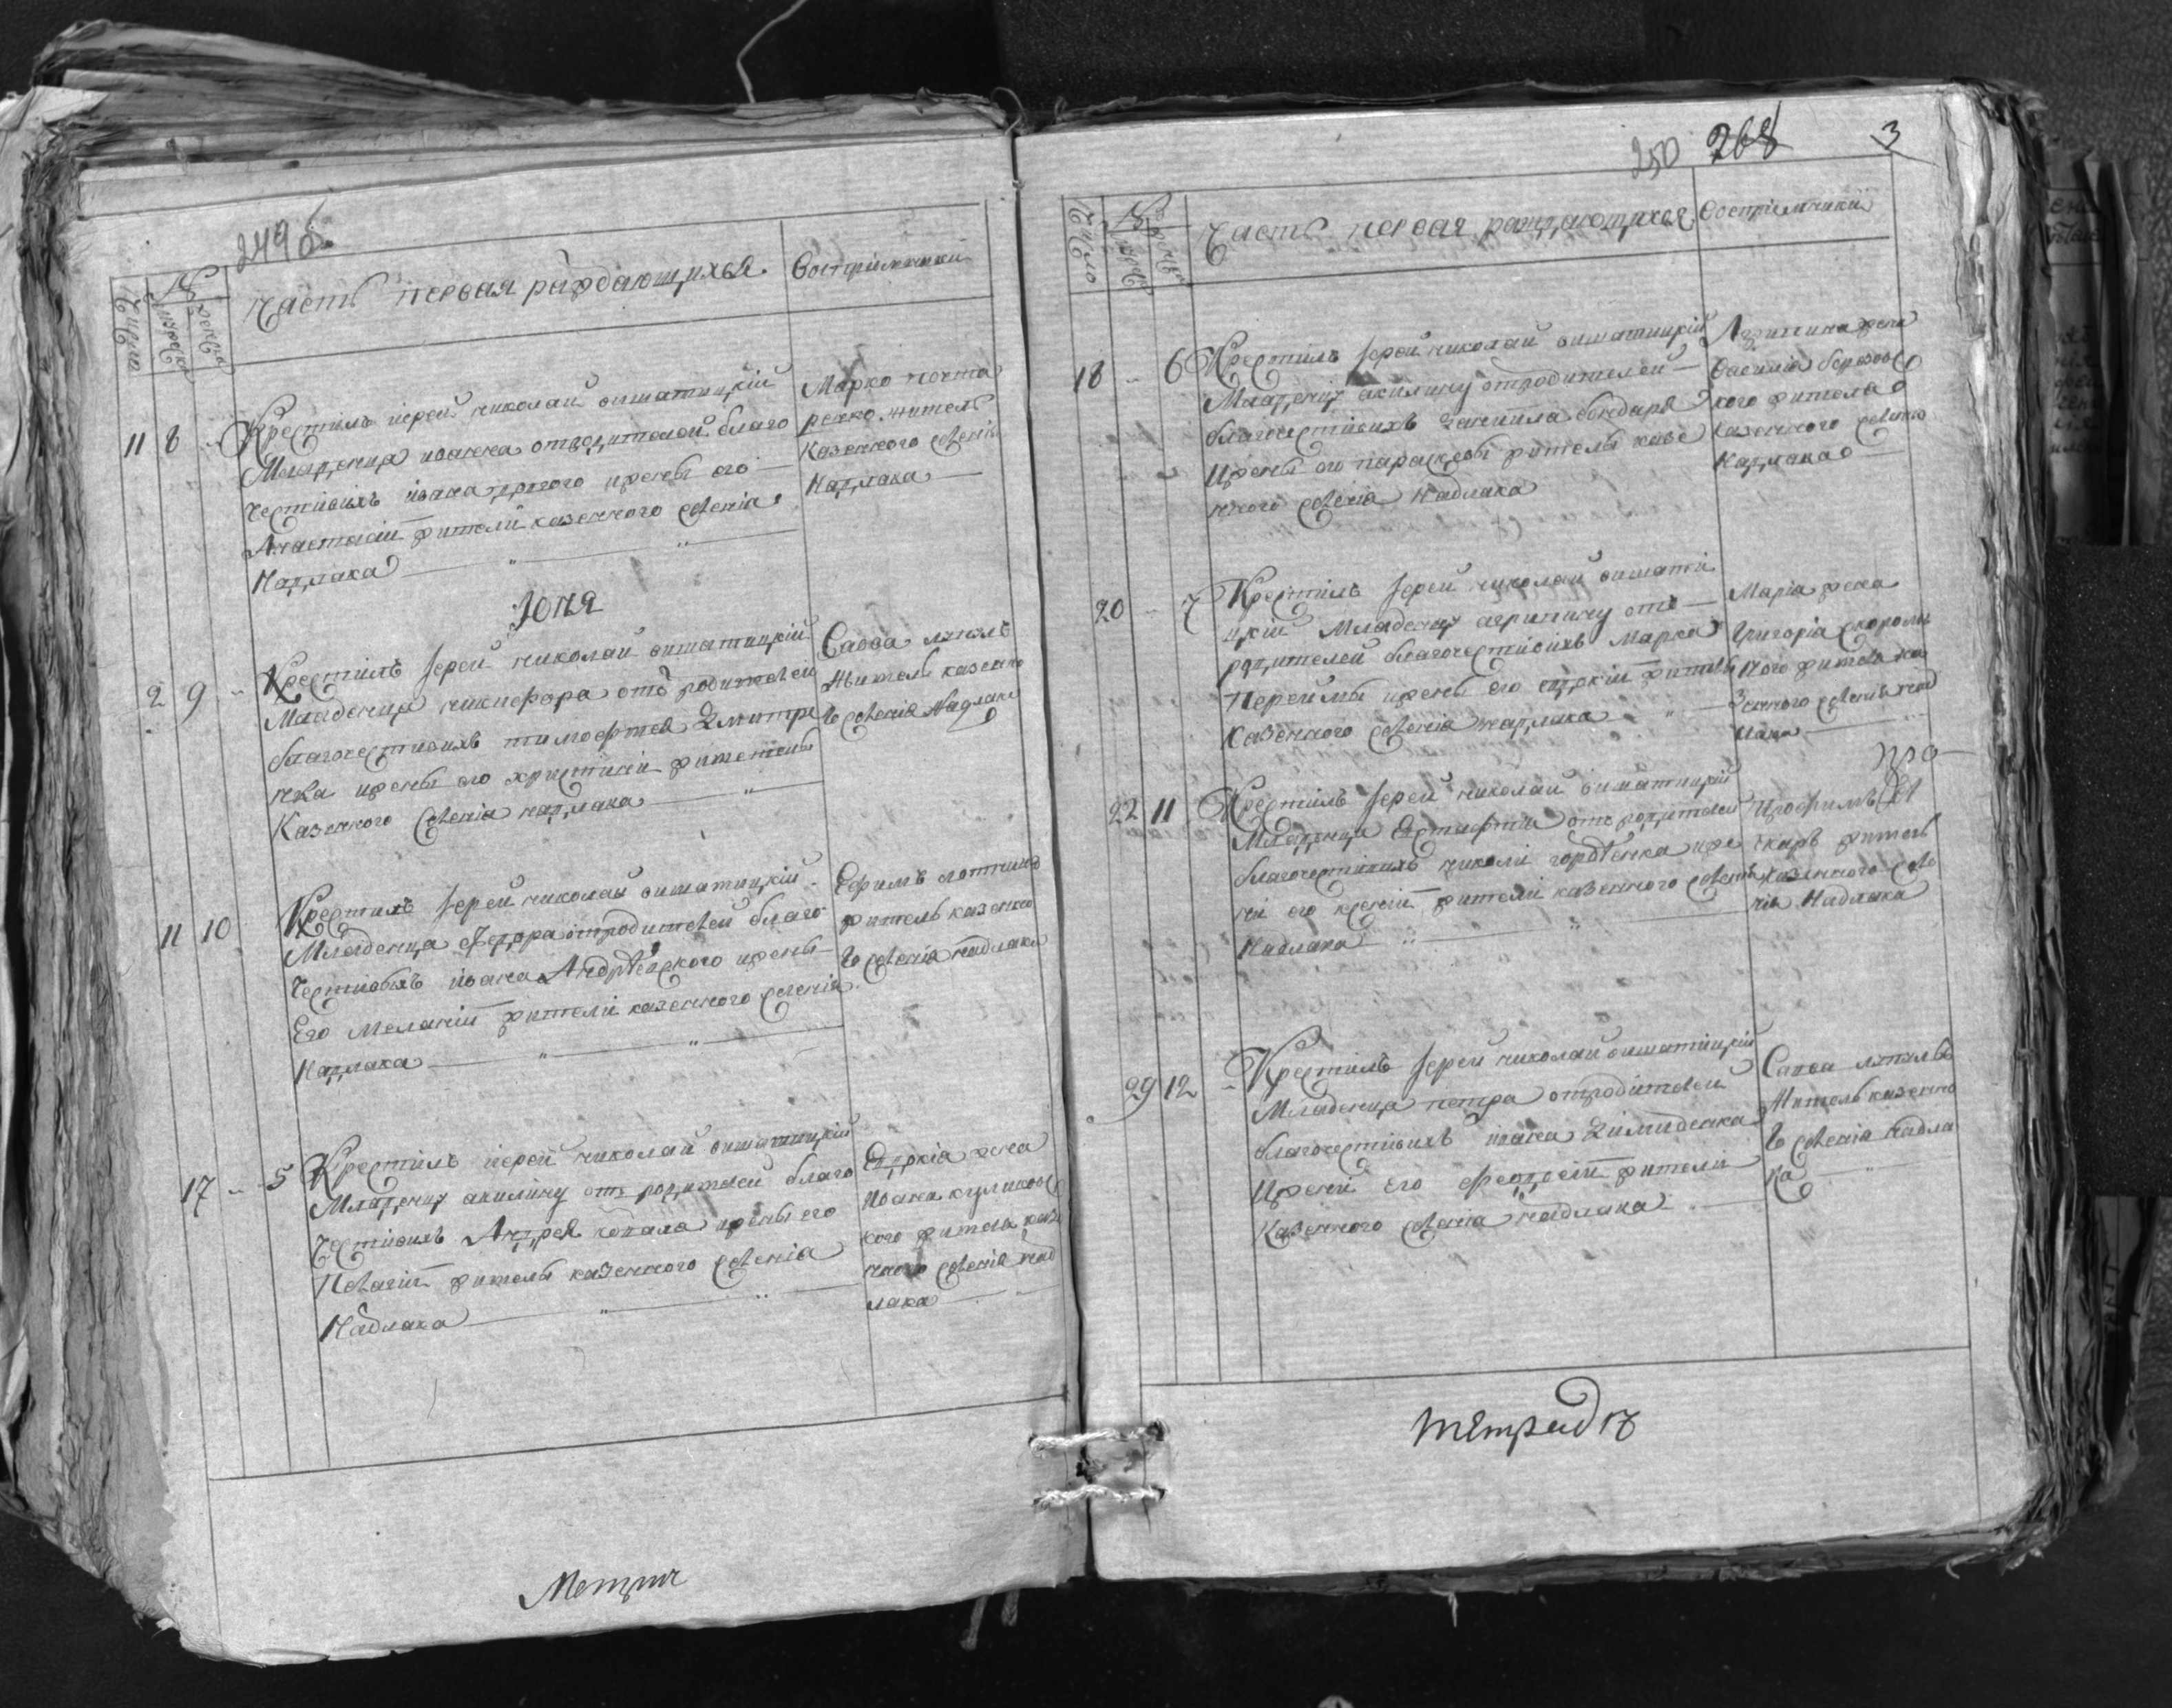 249 б.
Число
№
мужеска
женска
Часть первая раждающихъся
Восприемники
11 8
Крестилъ иерей николай вишатицкий
Младенца иоанна отродителей благо
честивихъ ивана ижены его
Анастасии жители казенного селения
Надлака
Марко
житель
Казенного селения
Надлака
Июня
2 9
Крестилъ иерей николай вишатицкий
Младенца никифора отъ родителей
благочестивихъ тимофтея Дмитре
нка ижены его христини жители
Казенного селения надлака
Савва
житель казенно
го селения Надлака
11 10
Крестилъ иерей николай вишатицкий
Младенца Федора отродителей благо
честивыхъ ивана Андрѣевского ижены
Его Мелании жители казенного селения
Надлака
Ефимъ
житель казенно
го селения надлака
17 5
Крестилъ иерей николай вишатицкий
Младеницу акилину отъ родителей благо
честивихъ Андрея ковала ижены его
Пелагии жители казенного селения
Надлака
Евдокия жена
Ивана куликовс
кого жителя казе
нного селения над
лака
250 268 3
Число
№
Часть первая раждающихся
Восприемники
18 6
Крестилъ иерей николай вишатицкий
Младеницу акилину отродителей
благочестивихъ данила бондаря
Ижены его параскевы жители казе
нного селения надлака
Агрипина жена
Василия березовс
кого жителя
Казенного селения
Надлака
20 7
Крестилъ иерей николай вишати
цкий Младеницу агрипину отъ
родителей благочестивихъ Марка
Переймы ижены его жители
Казенного селения надлака
Мария жена
Григория скоромъ
ного жителя ка
зенного селения над
лака
22 11
Крестилъ иерей николай вишатицкий
Младенца отъ родителей
благочестивихъ николи гордѣенка иже
ни его ксении жители казенного селения
Надлака
про
житель
казенного селе
ния Надлака
29 12
Крестилъ иерей николай вишатицкий
Младенца петра отродителей
благочестивихъ ивана
Ижени Его Феодосии жители
Казенного селения надлака
Савва
житель казенно
го селения надла
ка